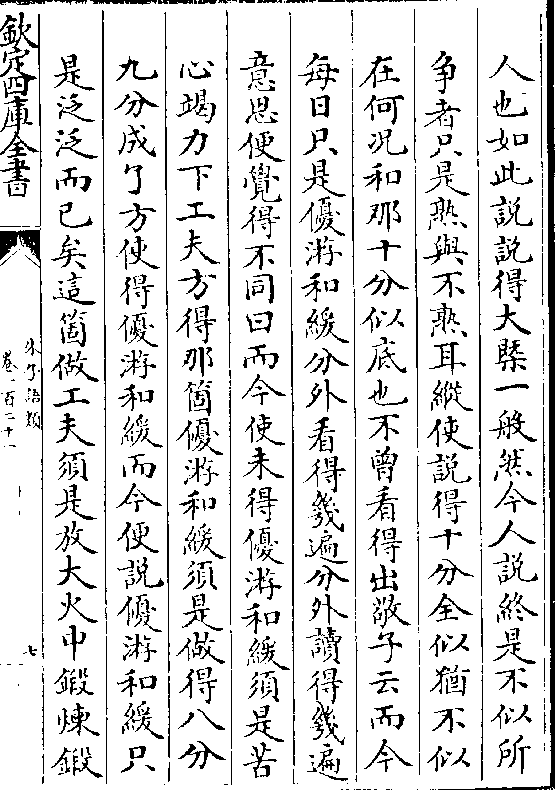 人也如此説説得大槩一般然今人説終是不似所
争者只是熟與不熟耳縱使説得十分全似猶不似
在何况和那十分似底也不曾看得出敬子云而今
每日只是優游和緩分外看得幾遍分外讀得幾遍
意思便覺得不同曰而今使未得優游和緩須是苦
心竭力下工夫方得那箇優游和緩須是做得八分
九分成了方使得優游和緩而今便説優游和緩只
是泛泛而已矣這箇做工夫須是放大火中鍛煉鍛
欽定四庫全書
朱子語類
卷一百二十一
七